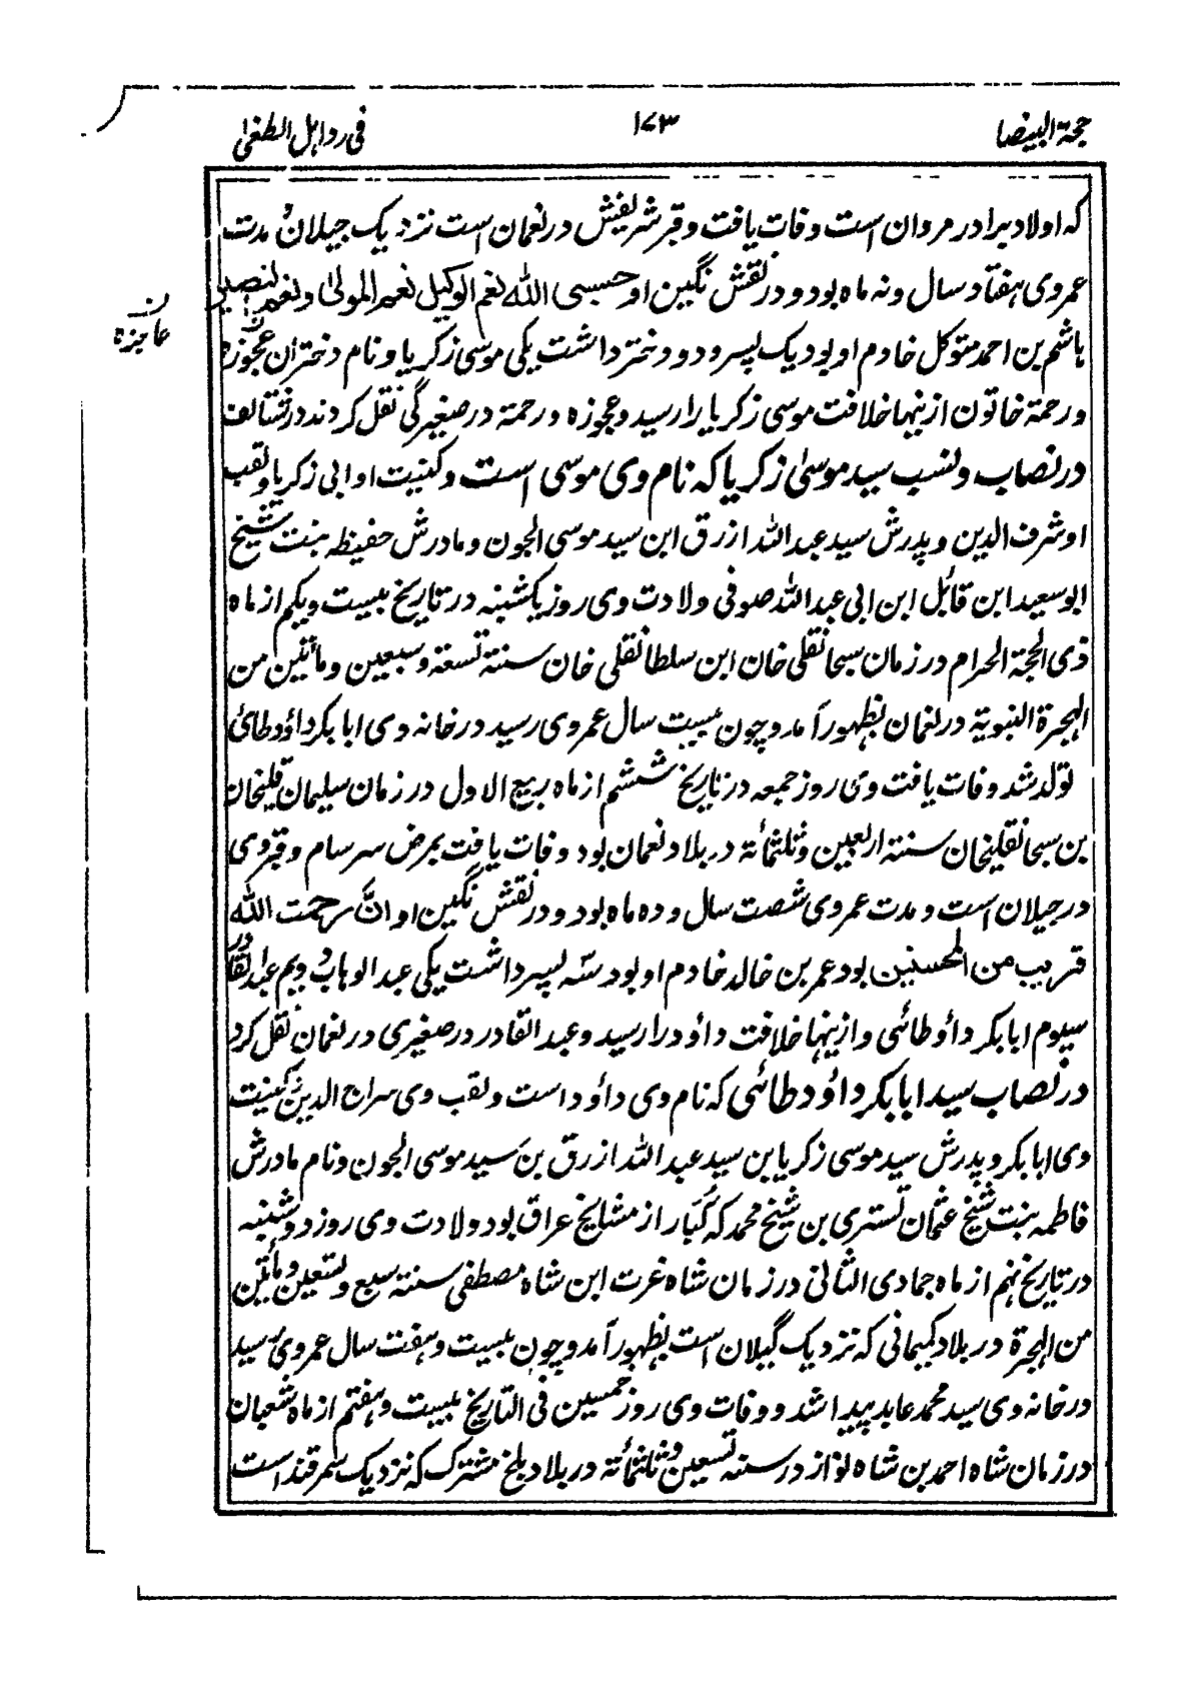 حجة البیضا
۱۷۳
فی رد اہل الطغیٰ
کہ اولاد برادر مروان است وفات یافت و قبر شریفش در نعمان است نزدیک جیلان مدت
عمر وی ہفتاد سال و نہ ماہ بود و در نقش نگین او حسبی اللّٰہ نعم الوکیل نعم المولیٰ و نعم النصیر
ہاشم بن احمد متوکل خادم او بود یک پسر و دو دختر داشت یکی موسی زکریا و نام دختران عجوزہ
ن عاجزہ
و رحمة خاتون ازینہا خلافت موسی زکریا را رسید و عجوزہ و رحمة در صغیرگی نقل کردند در
در نصاب و نسب سید موسیٰ زکریا کہ نام وی موسی است و کنیت او ابی زکریا و لقب
او شرف الدین و پدرش سید عبد اللّٰہ ازرق ابن سید موسی الجون و مادرش حفیظہ بنت شیخ
ابو سعید ابن قائل ابن ابی عبد اللّٰہ صوفی ولادت وی روز یکشنبہ در تاریخ بیست و یکم از ماہ
ذی الحجة الحرام در زمان سبحانقلی خان ابن سلطانقلی خان سنة تسعة و سبعین و مأتین من
الہجرة النبویة در نعمان بظہور آمد و چون بیست سال عمر وی رسید در خانہ وی ابا بکر داؤد طائی
تولد شد وفات یافت وی روز جمعہ در تاریخ ششم از ماہ ربیع الاول در زمان سلیمان قلیخان
بن سبحانقلیخان سنة اربعین و ثلثمائة در بلاد نعمان بود وفات یافت بمرض سرسام و قبر وی
در جیلان است و مدت عمر وی شصت سال و دہ ماہ بود و در نقش نگین او انّ رحمت اللّٰہ
قریب من المحسنین بود عمر بن خالد خادم او بود سہ پسر داشت یکی عبد الوہاب دیم عبد القادر
سیوم ابابکر داؤ طائی و ازینہا خلافت داؤد را رسید و عبد القادر در صغیری در نعمان نقل کرد
در نصاب سید ابابکر داؤد طائی کہ نام وی داؤد است و لقب وی سراج الدین کنیت
وی ابابکر و پدرش سید موسی زکریا بن سید عبد اللّٰہ ازرق بن سید موسی الجون و نام مادرش
فاطمہ بنت شیخ عثمان تستری بن شیخ محمد کہ کبار از مشایخ عراق بود ولادت وی روز دوشنبہ
در تاریخ نہم از ماہ جمادی الثانی در زمان شاہ غرت ابن شاہ مصطفی سنة سبع و تسعین و مأتین
من الہجرة در بلاد کیمانی کہ نزدیک گیلان است بظہور آمد و چون بیست و ہفت سال عمر وی رسید
در خانہ وی سید محمد عابد پیدا شد و وفات وی روز خمسین فی التاریخ بیست و ہفتم از ماہ شعبان
در زمان شاہ احمد بن شاہ نواز در سنہ تسعین و ثلثمائة در بلاد بلخ مشترک کہ نزدیک سمرقند است